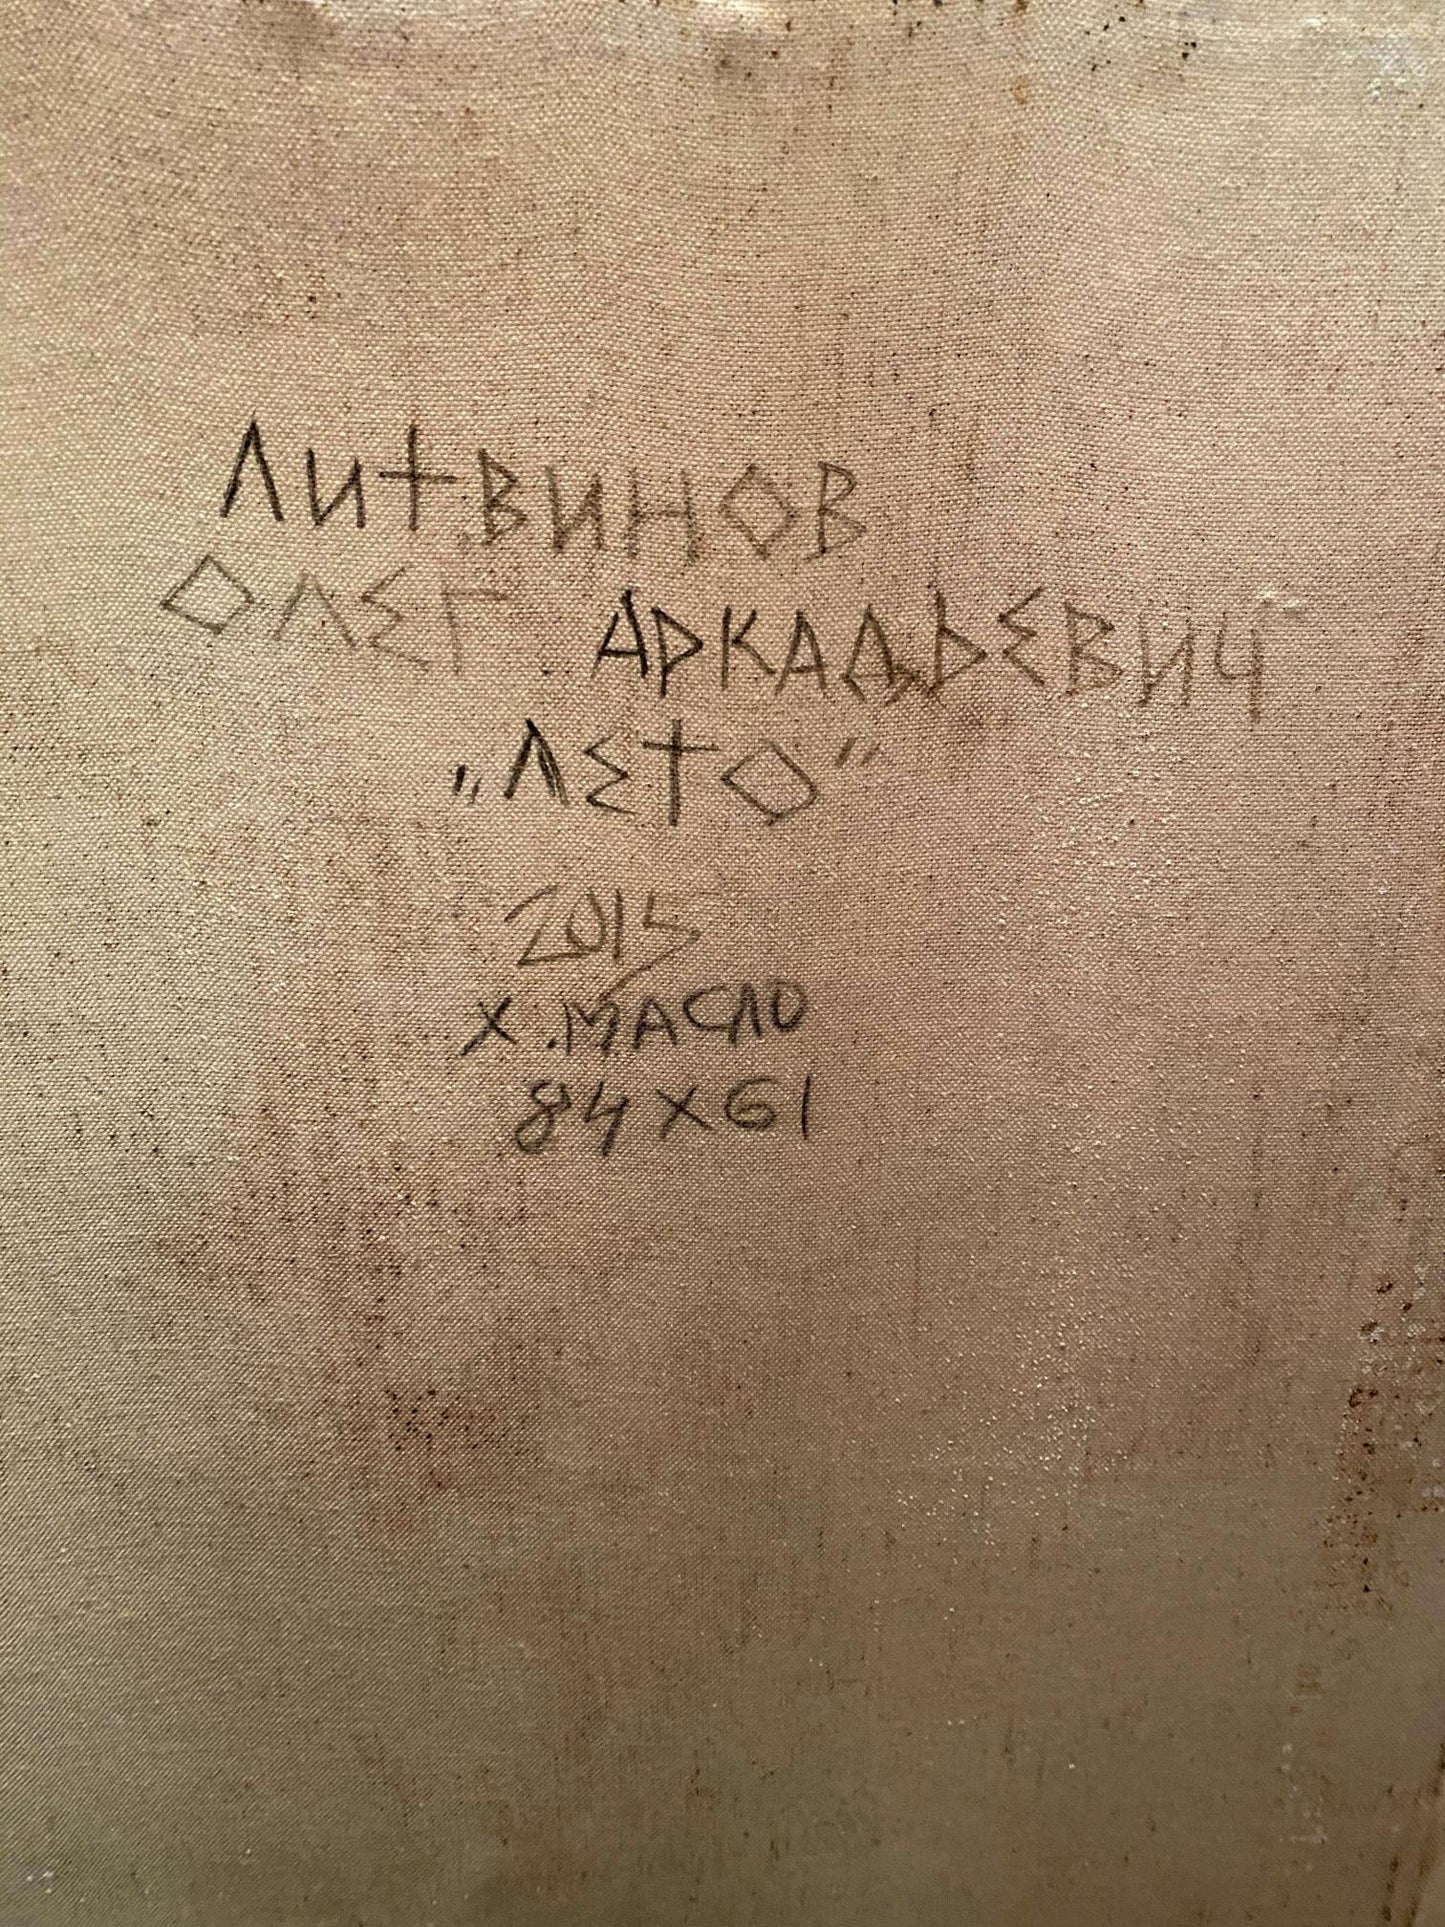 ЛИТВИНОВ
ОЛЕГ АРКАДЬЕВИЧ
„ЛЕТО“
2015
Х.МАСЛО
84х61